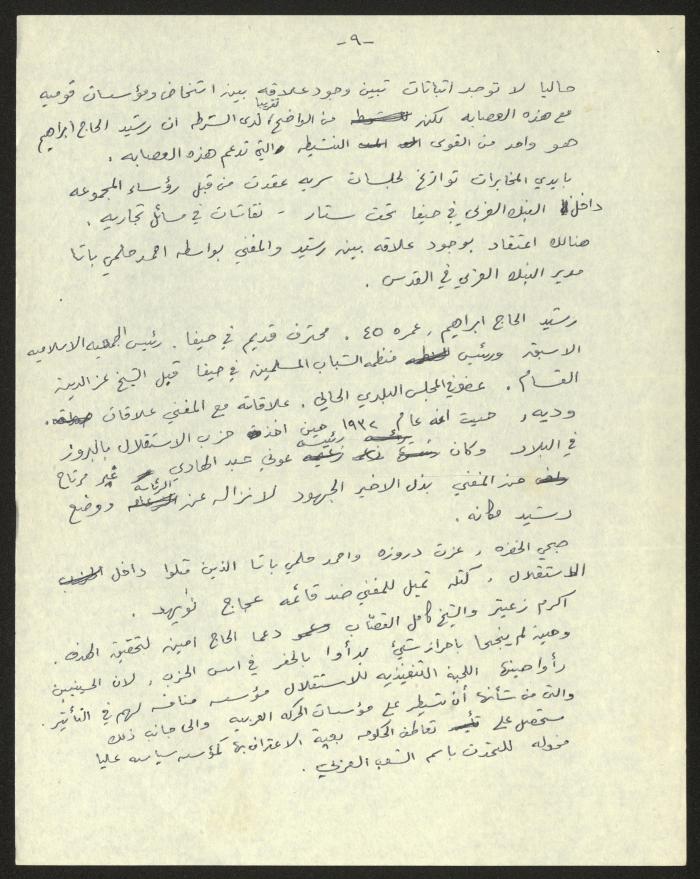 -٩-
حاليا لا توجد اثباتات تبين وجود علاقه بين اشخاص ومؤسسات قوميه
مع هذه العصابه لكن من الواضح تقريبا لدى الشرطه ان رشيد الحاج ابراهيم
هو واحد من القوى النشيطه التي تدعم هذه العصابه .
بايدي المخابرات تواريخ لجلسات سريه عقدت من قبل رؤساء المجموعه
داخل البنك العربي في حيفا تحت ستار - نقاشات في مسائل تجاريه .
هنالك اعتقاد بوجود علاقه بين رشيد والمفتي بواسطه احمد حلمي باشا
مدير البنك العربي في القدس .
رشيد الحاج ابراهيم , عمره ٤٥ . محترف قديم في حيفا . رئيس الجمعيه الاسلاميه
الاسبق ورئيس منظمه الشباب المسلمين في حيفا قبل الشيخ عز الدين
القسام . عضو في المجلس البلدي الحالي . علاقاته مع المفتي علاقات
وديه , حيث انه عام ١٩٣٢ حين اخذ حزب الاستقلال بالبروز
في البلاد وكان رئيسه عوني عبد الهادي غير مرتاح
من المفتي بذل الاخير الجهود لانزاله عن الرئاسة ووضع
رشيد مكانه .
صبحي الخضره , عزت دروزه واحمد حلمي باشا الذين مثلوا داخل
الاستقلال , كتله تميل للمفتي ضد قائمه عجاج نويهد .
اكرم زعيتر والشيخ كامل القصاب دعما الحاج امين لتحقيق الهدف .
وحين لم ينجحا باحراز شيئ بدأوا بالحفر في اسس الحزب , لان الحسينيين
رأوا حينها اللجنة التنفيذيه للاستقلال مؤسسه منافسه لهم في التأثير .
والتي من شأنها أن تسيطر على مؤسسات الحركه العربيه والى جانب ذلك
ستحصل على تعاطف الحكومه بغية الاعتراف بها كمؤسسه سياسيه عليا
مخوله للتحدث باسم الشعب العربي .